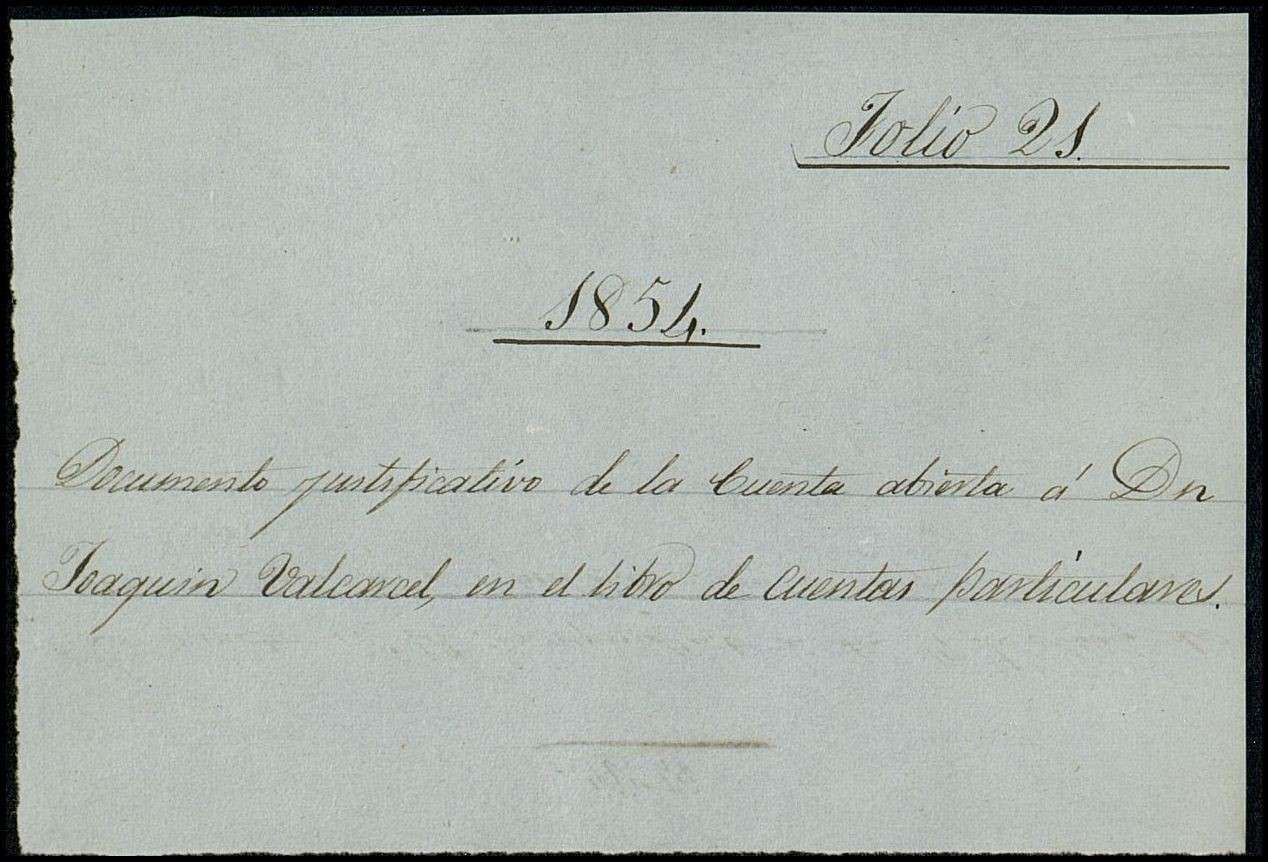 Folio 21.
1854.
Documento justificativo de la Cuenta abierta á Dn
Joaquin Valcarcel, en el libro de cuentas particulares.